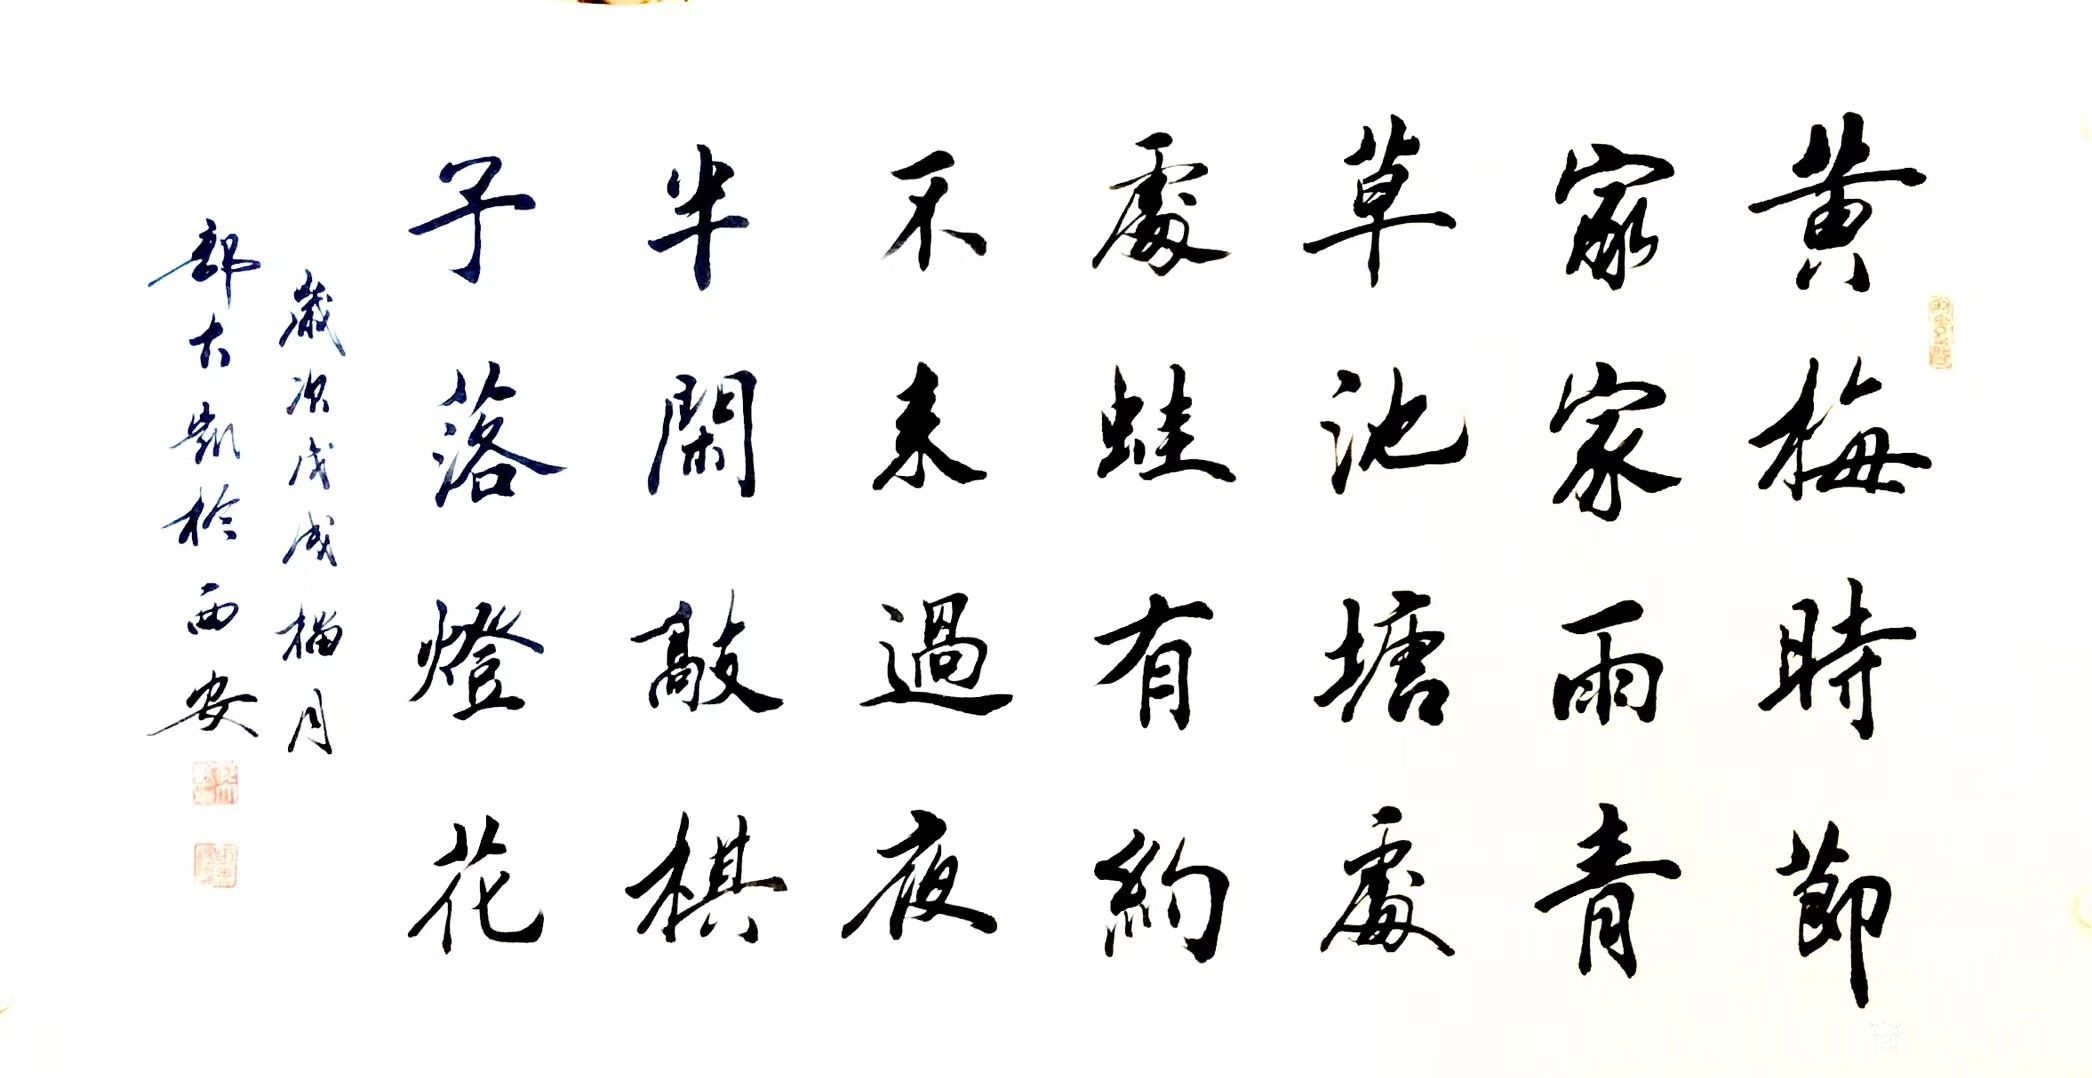 黄梅時節
家家雨青
草池塘處
處蛙有約
不来過夜
半閑敲棋
子落燈花
歲次戊戌榴月
大凱於西安